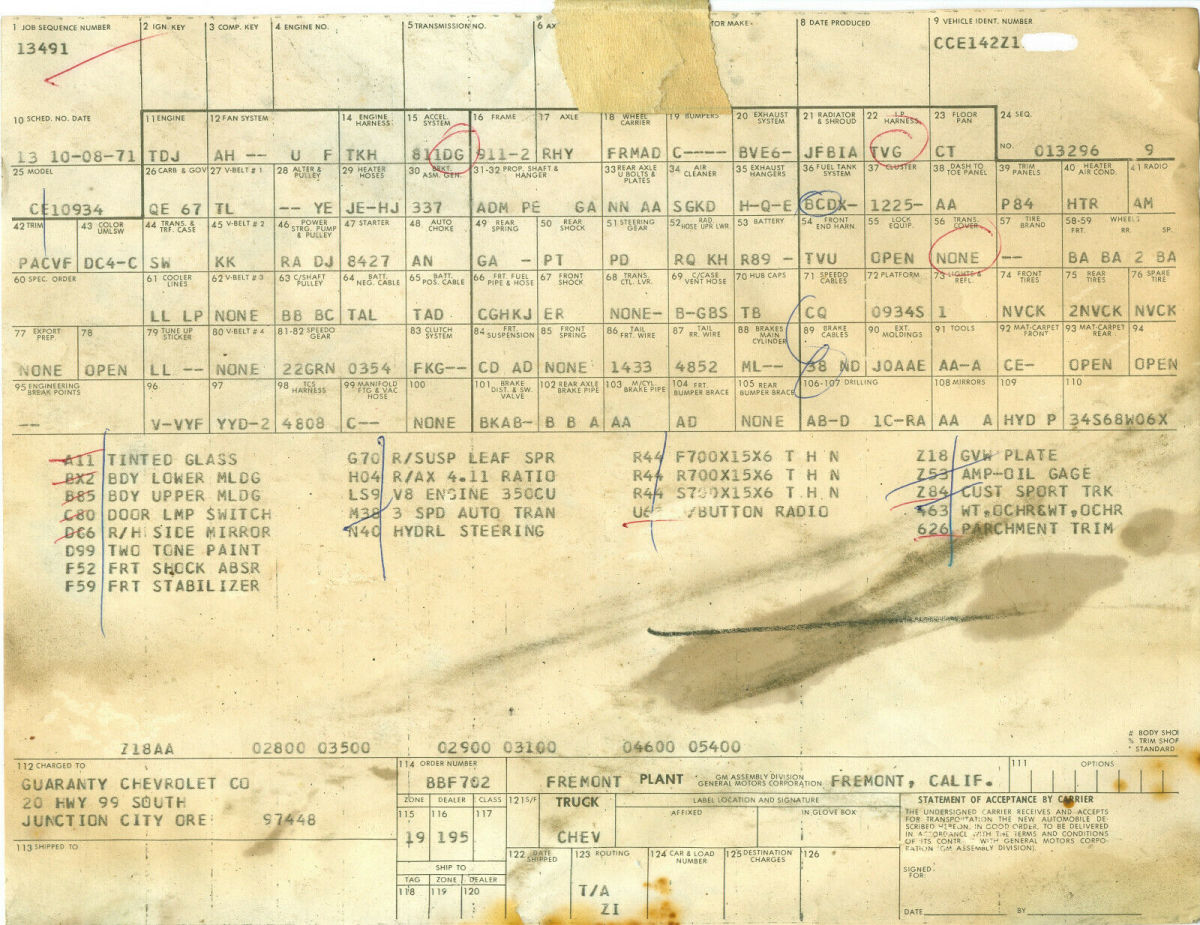 1 JOB SEQUENCE NUMBER 2 IGN. KEY 3 COMP. KEY 4 ENGINE NO. 5 TRANSMISSION NO. 6 8 DATE PRODUCED 9 VEHICLE IDENT. NUMBER
13491 CCE142Z1
10 SCHED. NO. DATE 11 ENGINE 12 FAN SYSTEM 14 ENGINE HARNESS 15 ACCEL. SYSTEM 16 FRAME 17 AXLE 18 WHEEL CARRIER 19 BUMPERS 20 EXHAUST SYSTEM 21 RADIATOR & SHROUD 22 I.P. HARNESS 23 FLOOR PAN 24 SEQ.
13 10-08-71 TDJ AH -- U F TKH 811DG 911-2 RHY FRMAD C---- BVE6- JFBIA TVG CT NO. 013296 9
25 MODEL 26 CARB & GOV 27 V-BELT # 1 28 ALTER & PULLEY 29 HEATER HOSES 30 BRKT. ASM. GEN. 31-32 PROP. SHAFT & HANGER 33 REAR AXLE U BOLTS & PLATES 34 AIR CLEANER 35 EXHAUST HANGERS 36 FUEL TANK SYSTEM 37 CLUSTER 38 DASH TO TOE PANEL 39 TRIM PANELS 40 HEATER AIR COND. 41 RADIO
CE10934 QE 67 TL -- YE JE-HJ 337 ADM PE GA NN AA SGKD H-Q-E BCDX- 1225- AA P84 HTR AM
42 TRIM 43 COLOR UMLSW 44 TRANS. & TRF. CASE 45 V-BELT # 2 46 POWER STRG. PUMP & PULLEY 47 STARTER 48 AUTO CHOKE 49 REAR SPRING 50 REAR SHOCK 51 STEERING GEAR 52 RAD HOSE UPR LWR 53 BATTERY 54 FRONT END HARN. 55 LOCK EQUIP. 56 TRANS. COVER 57 TIRE BRAND 58-59 WHEELS FRT. RR. SP.
PACVF DC4-C SW KK RA DJ 8427 AN GA - PT PD RQ KH R89 - TVU OPEN NONE -- BA BA 2 BA
60 SPEC. ORDER 61 COOLER LINES 62 V-BELT # 3 63 C/SHAFT PULLEY 64 BATT. NEG. CABLE 65 BATT. POS. CABLE 66 FRT. FUEL PIPE & HOSE 67 FRONT SHOCK 68 TRANS. CTL. LVR. 69 C/CASE VENT HOSE 70 HUB CAPS 71 SPEEDO CABLES 72 PLATFORM 73 LIGHTS & REFL. 74 FRONT TIRES 75 REAR TIRES 76 SPARE TIRE
LL LP NONE BB BC TAL TAD CGHKJ ER NONE- B-GBS TB CQ 0934S 1 NVCK 2NVCK NVCK
77 EXPORT PREP. 78 79 TUNE UP STICKER 80 V-BELT # 4 81-82 SPEEDO GEAR 83 CLUTCH SYSTEM 84 FRT. SUSPENSION 85 FRONT SPRING 86 TAIL FRT. WIRE 87 TAIL RR. WIRE 88 BRAKES MAIN CYLINDER 89 BRAKE CABLES 90 EXT. MOLDINGS 91 TOOLS 92 MAT-CARPET FRONT 93 MAT-CARPET REAR 94
NONE OPEN LL -- NONE 22GRN 0354 FKG-- CD AD NONE 1433 4852 ML-- 38 ND JOAAE AA-A CE- OPEN OPEN
95 ENGINEERING BREAK POINTS 96 97 98 TCS HARNESS 99 MANIFOLD FTG & VAC HOSE 100 101 BRAKE DIST. & SW. VALVE 102 REAR AXLE BRAKE PIPE 103 M/CYL. BRAKE PIPE 104 FRT. BUMPER BRACE 105 REAR BUMPER BRACE 106-107 DRILLING 108 MIRRORS 109 110
-- V-VYF YYD-2 4808 C-- NONE BKAB- B B A AA AD NONE AB-D 1C-RA AA A HYD P 34S68W06X
A11 TINTED GLASS G70 R/SUSP LEAF SPR R44 F700X15X6 T H N Z18 GVW PLATE
BX2 BDY LOWER MLDG H04 R/AX 4.11 RATIO R44 R700X15X6 T H N Z53 AMP-OIL GAGE
B85 BDY UPPER MLDG LS9 V8 ENGINE 350CU R44 S700X15X6 T H N Z84 CUST SPORT TRK
C80 DOOR LMP SWITCH M38 3 SPD AUTO TRAN /BUTTON RADIO 463 WT,OCHR&WT,OCHR
DG6 R/H SIDE MIRROR N40 HYDRL STEERING 626 PARCHMENT TRIM
D99 TWO TONE PAINT
F52 FRT SHOCK ABSR
F59 FRT STABILIZER
Z18AA 02800 03500 02900 03100 04600 05400
# BODY SHOP
% TRIM SHOP
* STANDARD
112 CHARGED TO 114 ORDER NUMBER 111 OPTIONS
GUARANTY CHEVROLET CO BBF702 FREMONT PLANT GM ASSEMBLY DIVISION GENERAL MOTORS CORPORATION FREMONT, CALIF.
20 HWY 99 SOUTH ZONE DEALER CLASS 121 S/F TRUCK LABEL LOCATION AND SIGNATURE STATEMENT OF ACCEPTANCE BY CARRIER
JUNCTION CITY ORE 97448 115 116 117 AFFIXED IN GLOVE BOX
THE UNDERSIGNED CARRIER RECEIVES AND ACCEPTS
FOR TRANSPORTATION THE NEW AUTOMOBILE DE-
SCRIBED HEREON, IN GOOD ORDER, TO BE DELIVERED
IN ACCORDANCE WITH THE TERMS AND CONDITIONS
OF ITS CONTR WITH GENERAL MOTORS CORPO-
RATION (GM ASSEMBLY DIVISION).
19 195 CHEV
113 SHIPPED TO 122 DATE SHIPPED 123 ROUTING 124 CAR & LOAD NUMBER 125 DESTINATION CHARGES 126
SHIP TO SIGNED FOR:
TAG ZONE DEALER
118 119 120 T/A
ZI
DATE BY